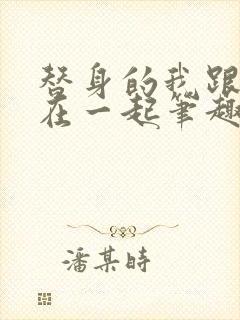 替身的我跟
在一起笔趣
潘某時